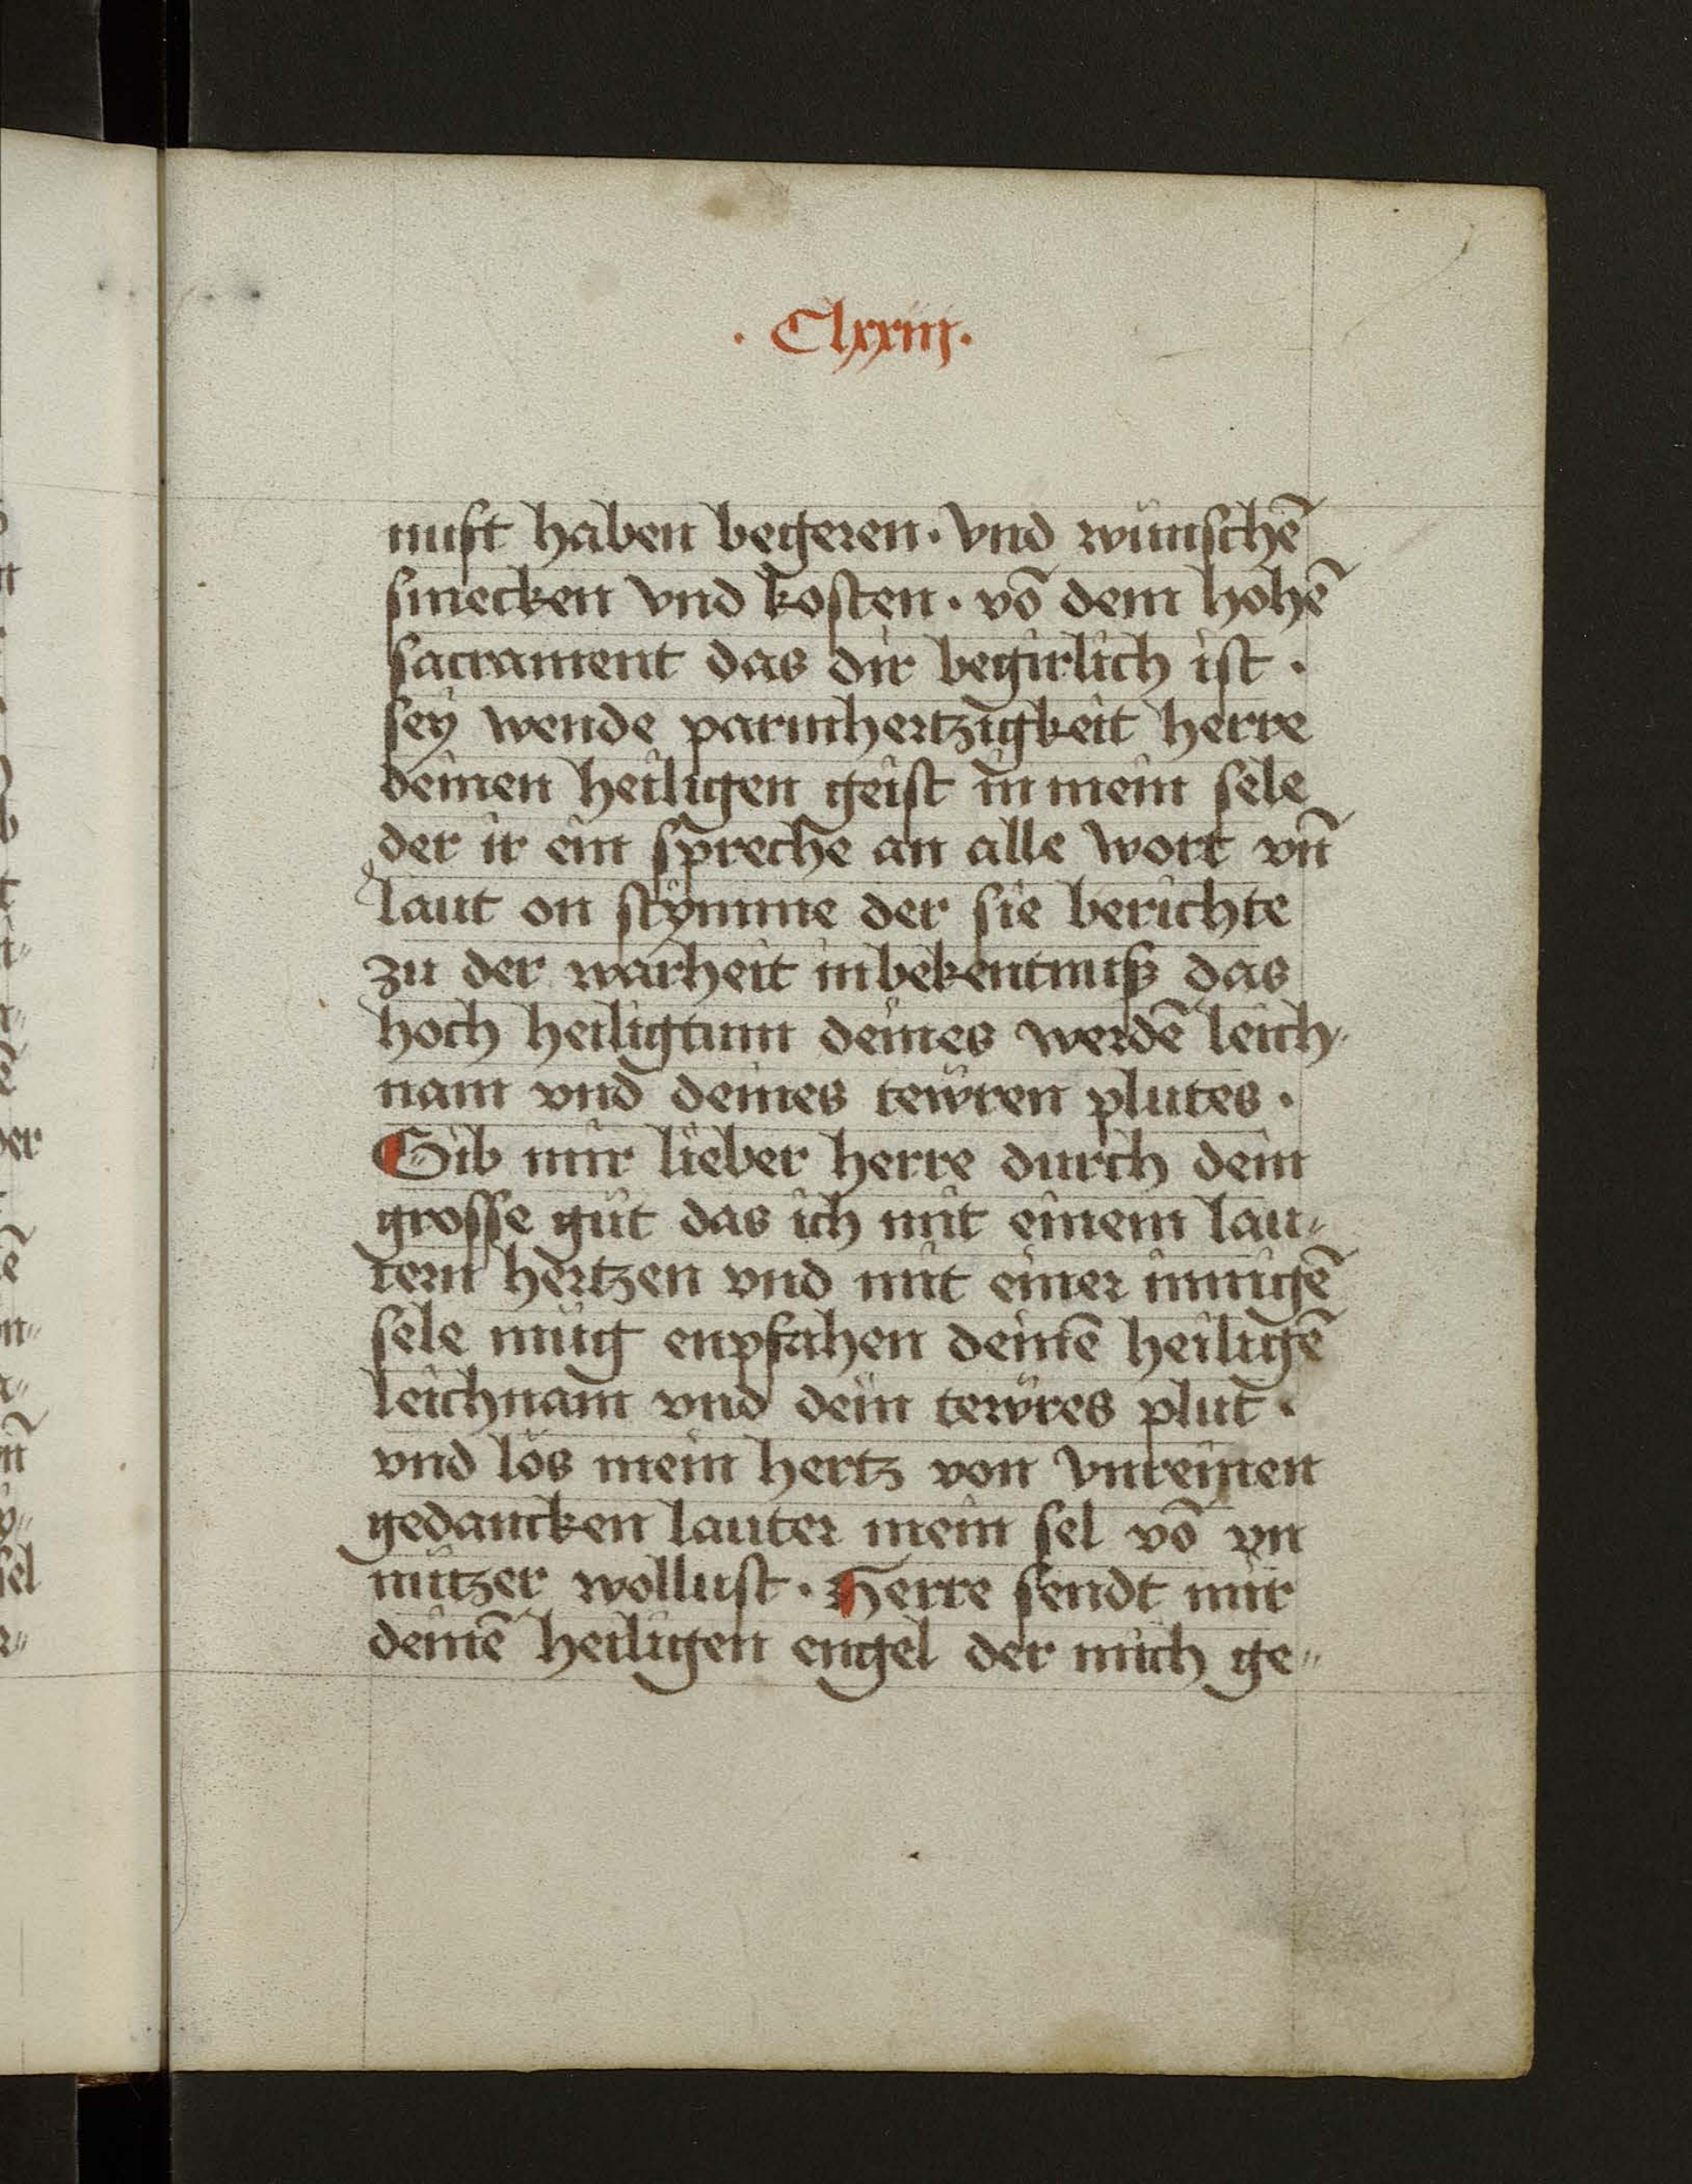 · Clxxiij ·
nuft haben begeren · vnd wünschē
smecken vnd kosten · vō dem hohē
sacrament das dir begirlich ist ·
sey wende parmhertzigkeit herre
deinen heiligen geist in mein sele
der ir ein spreche an alle wort vn̄
laut on stymme der sie berichte
zu der warheit in bekentnuß das
hoch heiligtum deines werdē leich-
nam vnd deines tewren plutes ·
Gib mir lieber herre durch dein
grosse güt das ich mit einem lau-
tern hertzen vnd mit einer innigē
sele müg enpfahen deinē heiligē
leichnam vnd dein tewres plut ·
vnd lös mein hertz von vnreinen
gedancken lauter mein sel vō vn
nützer wollust · Herre sendt mir
deinē heiligen engel der mich ge-